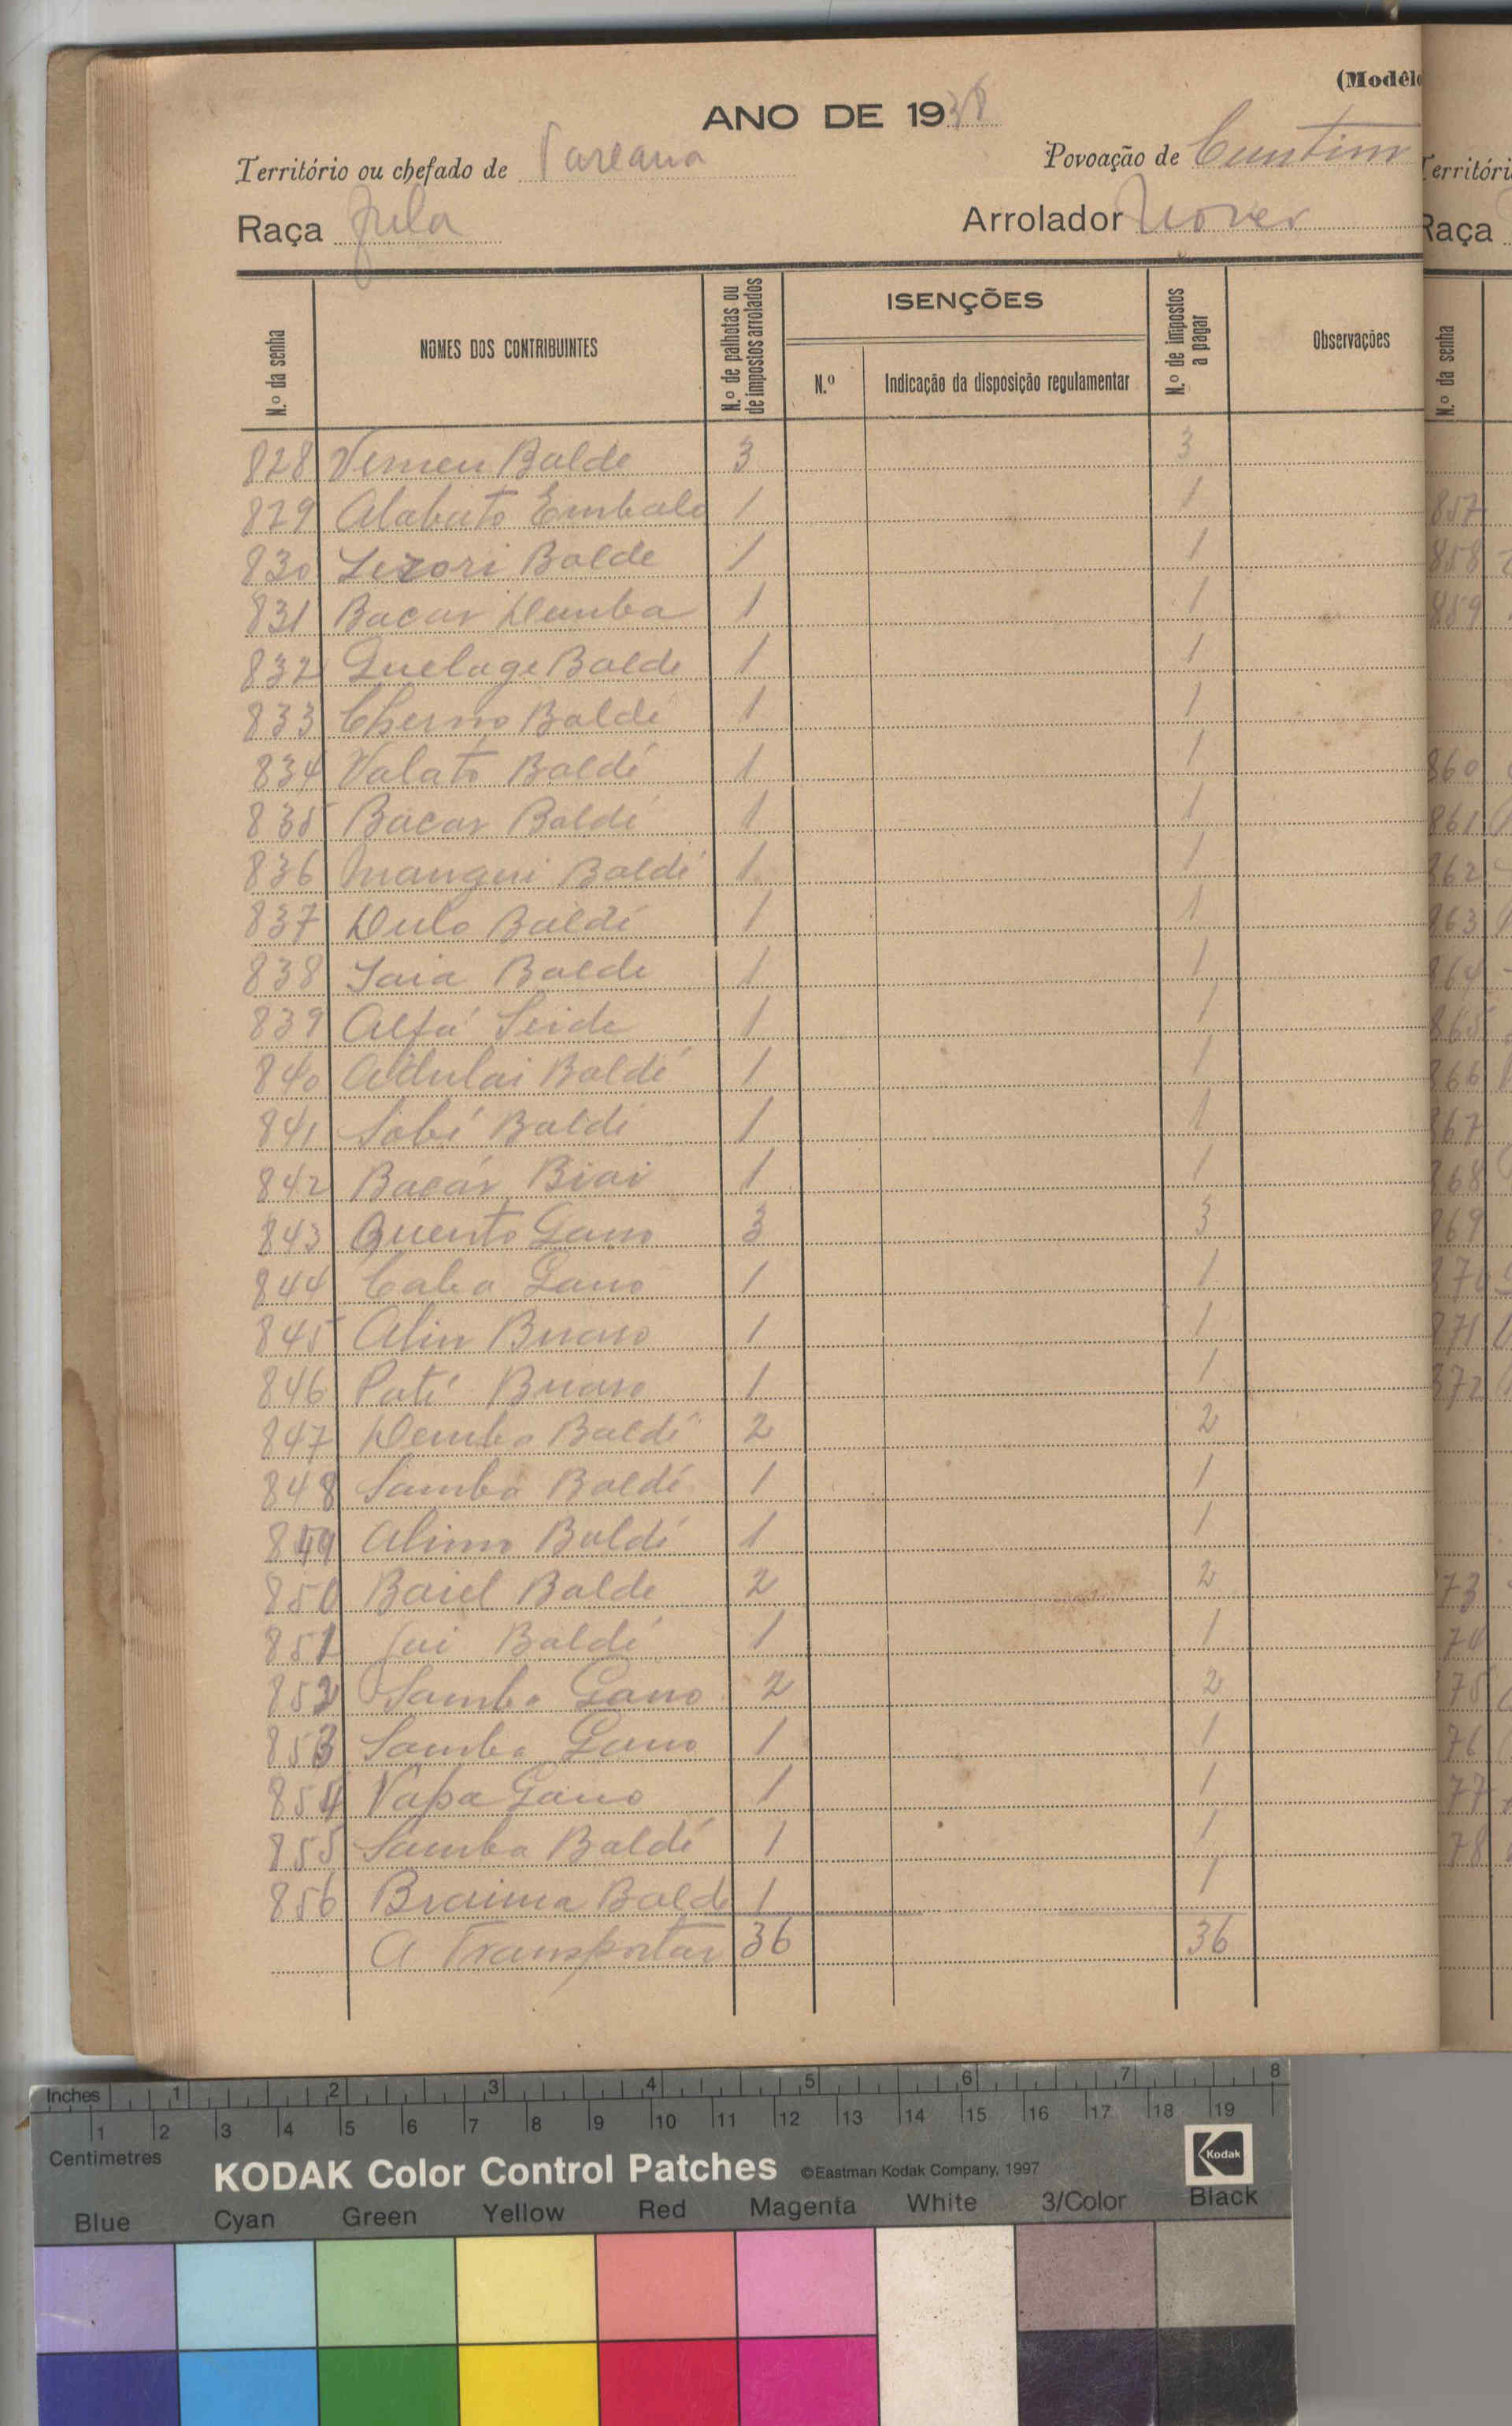 (Modêlo
ANO DE 1938
Território ou chefado de Pareana
Povoação de Cuntim
Raça Fula
Arrolador
N.º da senha
NOMES DOS CONTRIBUINTES
N.º de palhotas ou de impostos arrolados
ISENÇÕES
N.º
Indicação da disposição regulamentar
N.º de impostos a pagar
Observações
828 Balde 3 3
829 Alabato Embalo 1 1
830 Balde 1 1
831 Bacar Demba 1 1
832 Guelage Balde 1 1
833 Cherno Baldé 1 1
834 Valato Baldé 1 1
835 Bacar Baldé 1 1
836 Mangui Baldé 1 1
837 Dulo Baldé 1 1
838 Saia Balde 1 1
839 Alfá Seide 1 1
840 Adulai Baldé 1 1
841 Sobé Baldé 1 1
842 Bacár Biai 1 1
843 Quento Gano 3 3
844 Gano 1 1
845 Alin 1 1
846 Paté 1 1
847 Demba Baldé 2 2
848 Samba Baldé 1 1
849 Alimo Baldé 1 1
850 Baiel Balde 2 2
851 Baldé 1 1
852 Samba Gano 2 2
853 Samba Gano 1 1
854 Vapa Gano 1 1
855 Samba Baldé 1 1
856 Braima Balde 1 1
A Transportar 36 36
Territóri
Raça
N.º da senha
857
858
859
860
861
862
863
864
865
866
867
868
869
870
871
872
73
74
75
76
77
78
Inches 1 2 3 4 5 6 7 8
1 2 3 4 5 6 7 8 9 10 11 12 13 14 15 16 17 18 19
Centimetres
KODAK Color Control Patches ©Eastman Kodak Company, 1997 Kodak
Blue Cyan Green Yellow Red Magenta White 3/Color Black